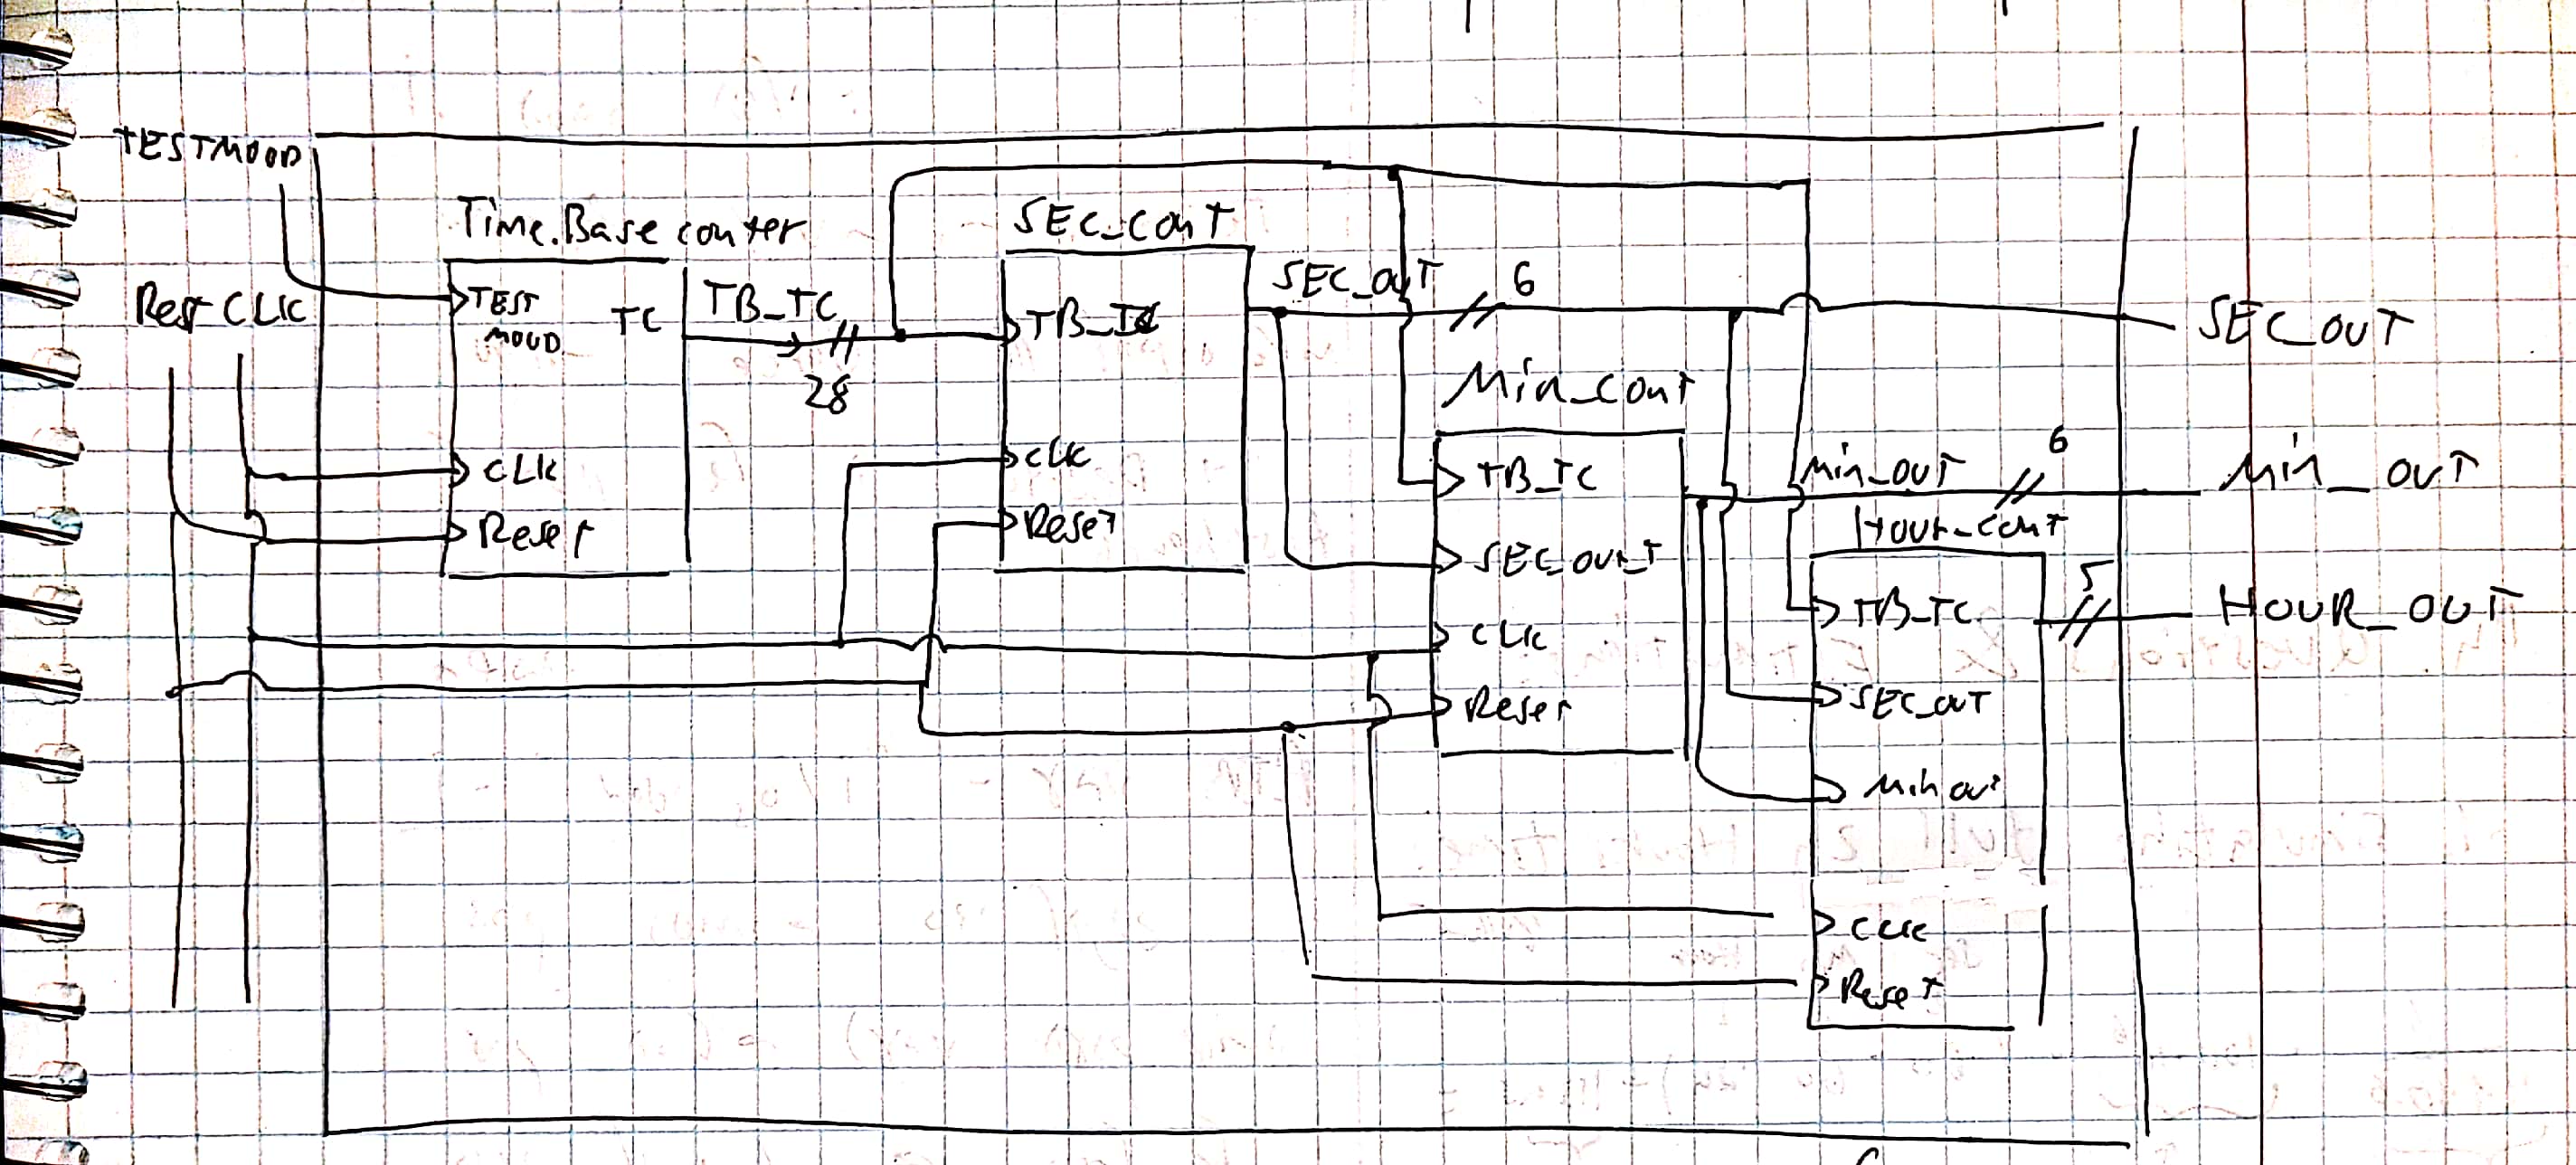 TESTMOOD
Rest CLK
Time.Base conter
TEST
MOUD
TC
CLK
Reset
TB_TC
28
SEC_cont
TB_TC
CLK
Reset
SEC_out
6
Min_cont
TB_TC
SEC_out_T
CLK
Reset
Min_out
6
Hour_cont
TB_TC
SEC_out
Min out
CLK
Reset
5
SEC_OUT
Min_OUT
HOUR_OUT